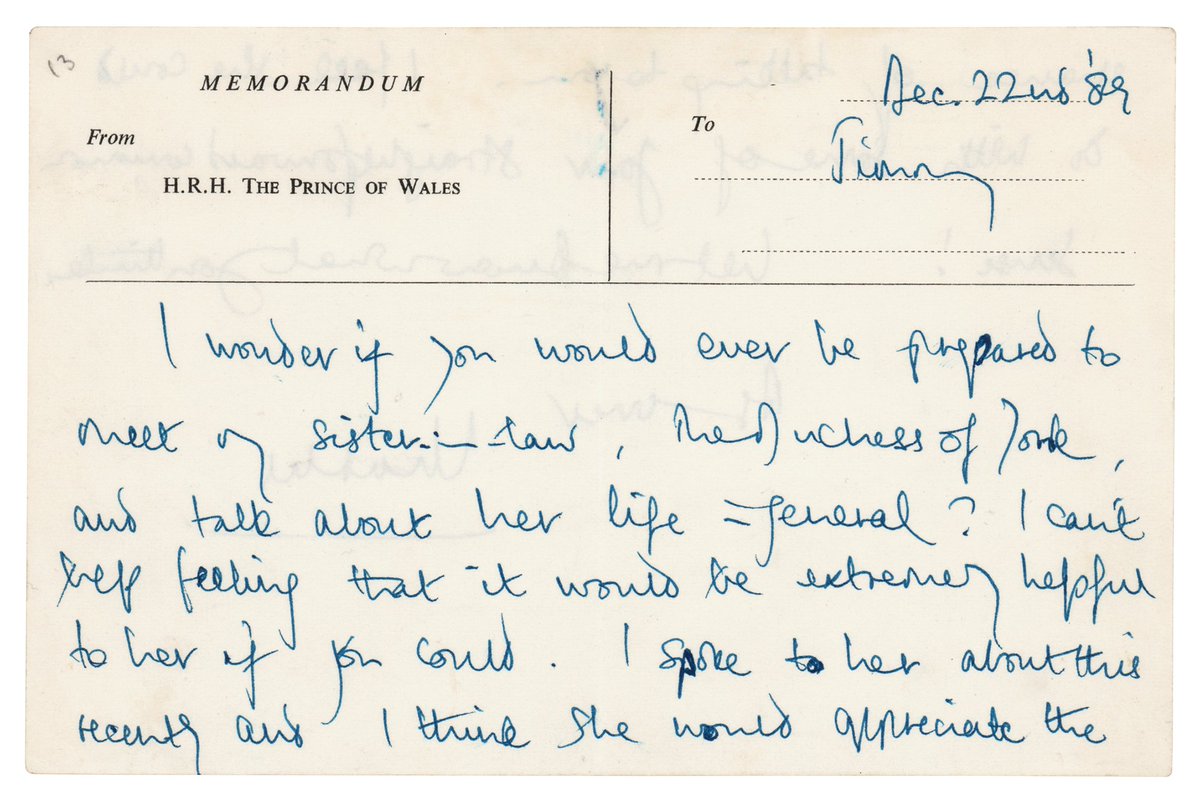 13
MEMORANDUM
From
H.R.H. The Prince of Wales
To
Dec. 22nd '89
Jimmy
I wonder if you would ever be prepared to
meet my sister-in-law, The Duchess of York,
and talk about her life in general? I can't
help feeling that it would be extremely helpful
to her if you could. I spoke to her about this
recently and I think she would appreciate the